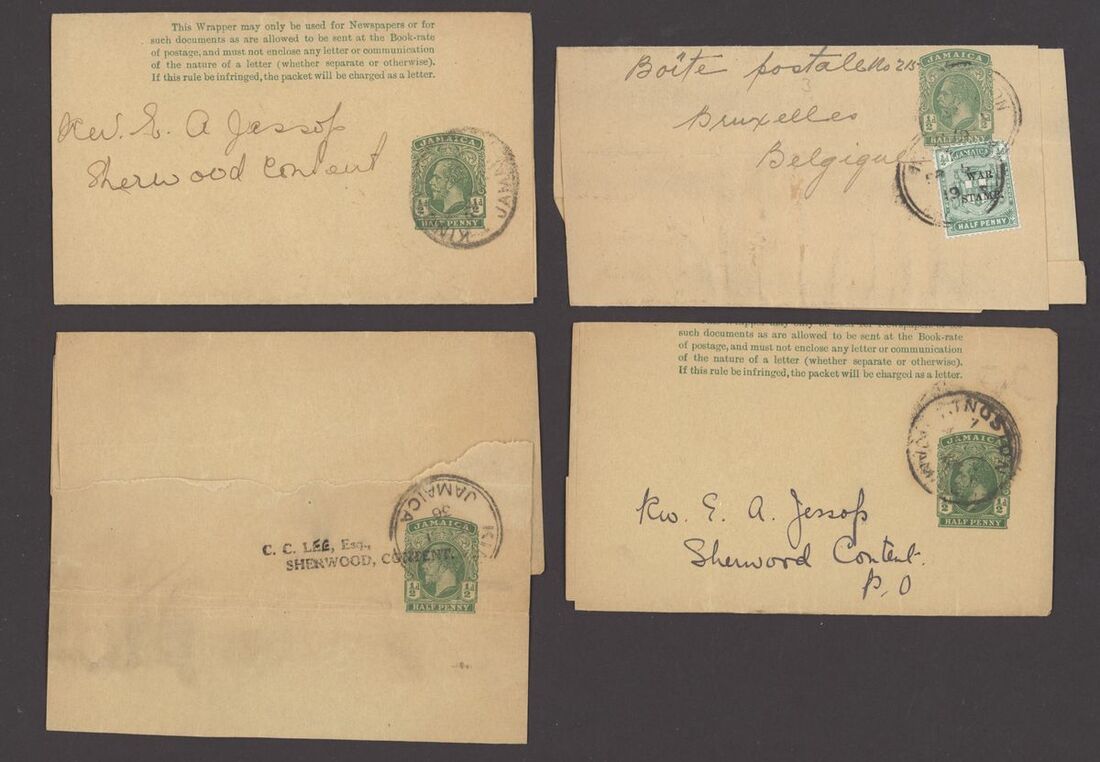 This Wrapper may only be used for Newspapers or for
such documents as are allowed to be sent at the Book-rate
of postage, and must not enclose any letter or communication
of the nature of a letter (whether separate or otherwise).
If this rule be infringed, the packet will be charged as a letter.
Rev. E. A Jessop
Sherwood Content
JAMAICA
½d ½
HALF PENNY
KIN JAMA
Boîte postale No 215
Bruxelles
Belgique
JAMAICA
½ ½
HALF PENNY
JAMAICA
WAR
STAMP.
HALF PENNY
JAMAICA
30
KIN
C. C. LEE, Esq.,
SHERWOOD, CONTENT.
JAMAICA
½d ½d
HALF PENNY
This Wrapper may only be used for Newspapers or for
such documents as are allowed to be sent at the Book-rate
of postage, and must not enclose any letter or communication
of the nature of a letter (whether separate or otherwise).
If this rule be infringed, the packet will be charged as a letter.
KINGSTON
7
JAMAICA
½ ½d
HALF PENNY
Rev. E. A. Jessop
Sherwood Content.
P.O